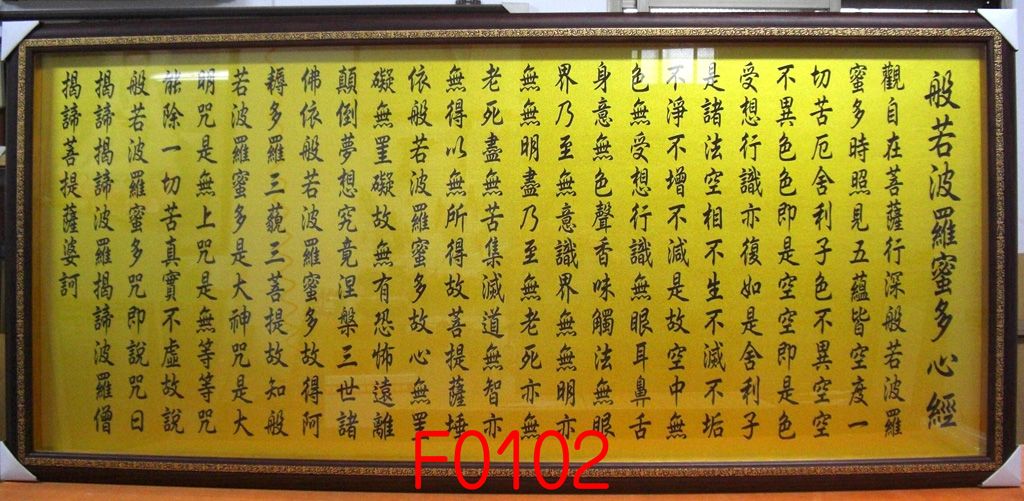 般若波羅蜜多心經
觀自在菩薩行深般若波羅
蜜多時照見五蘊皆空度一
切苦厄舍利子色不異空空
不異色色即是空空即是色
受想行識亦復如是舍利子
是諸法空相不生不滅不垢
不淨不增不減是故空中無
色無受想行識無眼耳鼻舌
身意無色聲香味觸法無眼
界乃至無意識界無無明亦
無無明盡乃至無老死亦無
老死盡無苦集滅道無智亦
無得以無所得故菩提薩埵
依般若波羅蜜多故心無罣
礙無罣礙故無有恐怖遠離
顛倒夢想究竟涅槃三世諸
佛依般若波羅蜜多故得阿
耨多羅三藐三菩提故知般
若波羅蜜多是大神咒是大
明咒是無上咒是無等等咒
能除一切苦真實不虛故說
般若波羅蜜多咒即說咒曰
揭諦揭諦波羅揭諦波羅僧
揭諦菩提薩婆訶
F0102